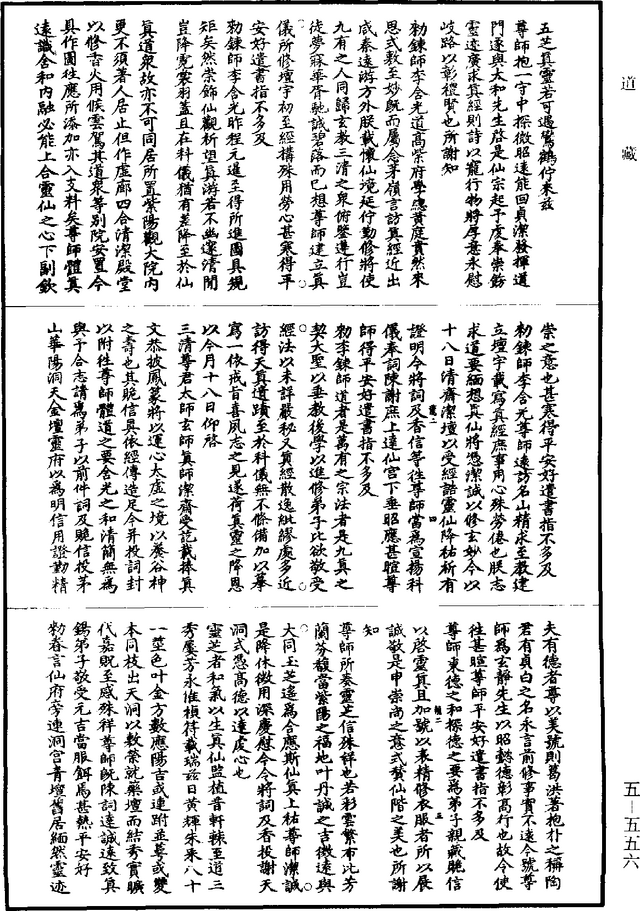 道藏
五芝真靈若可遇鸞鶴佇來茲
尊師抱一守中探微昭遠能回貞潔發揮道
門遂與太和先生啓是仙宗起于虔奉崇飾
靈迹廣求真經則詩以寵行物將厚意永慰
岐路以彰從賢也所謝知
勑鍊師李含光道高紫府學總黃庭賁然來
思式敷至妙既而屬念茅嶺言訪真經近出
咸秦遠游方外朕載懷仙境延佇勤修將使
九有之人同歸玄教三清之衆俯鑒遵行豈
徒夢寐華胥馳誠碧落而已想尊師建立真
儀所修壇宇初至經構殊用勞心甚寒得平
安好遣書指不多及
勑鍊師李含光昨程元暹至得所進圖具規
矩矣然崇飾仙觀祈望真游若不幽邃清閒
豈降霓裳羽蓋且在科儀猶有差降至於仙
真道衆故亦不可同居所置紫陽觀大院内
更不須著人居止但作虛廊四合清潔殿堂
以修香火用候雲駕其道衆等別院安置今
具作圖往應所添加亦入支料矣尊師體真
遠識含和内融必能上合靈仙之心下副欽
崇之意也甚寒得平安好遣書指不多及
勑鍊師李含光尊師遠訪名山精求至教建
立壇宇載寫真經庶事用心殊勞倦也朕志
求道要緬想真仙將憑潔誠以修玄妙今以
十八日清齋潔壇以受經誥靈仙降祐祈有
證明今將詞及香信等往尊師當爲宣揚科
儀奉詞陳謝庶上達仙宮下垂昭應甚暄尊
師得平安好遣書指不多及
勑李鍊師道者是萬有之宗法者是九真之
契大聖以垂教後學以進修弟子比欲敬受
經法以未詳嚴秘又真經散逸紕繆處多近
訪得天真遺蹟至於科儀無不條備加以摹
寫一依戒旨喜夙志之見遂荷真靈之降恩
以今月十八日仰啓
三清尊君太師玄師真師潔齋受訖載捧真
文恭披鳳篆將以運心太虛之境以養谷神
之壽也其貺信具依經傳造足今并投詞封
以附往尊師體道之要含光之和清簡無爲
與予合志請爲弟子以前件詞及貺信投茅
山華陽洞天金壇靈府以爲明信用證勤精
夫有德者尊以美號則葛洪著抱朴之稱陶
君有貞白之名永言前修事實不遠今號尊
師爲玄靜先生以昭懿德彰高行也故令使
往甚暄尊師平安好遣書指不多及
尊師東德之和探德之要爲弟子親藏貺信
以啓靈真且加號以表精修衣服者所以展
誠敬是申崇尚之意式贊仙階之美也所謝
知
尊師所奏靈芝信殊祥也若彩雲繁布比芳
蘭芬馥當紫陽之福地叶丹誠之吉徵遠與
大同玉芝遙爲合應斯仙真上祐尊師潔誠
是降休徵用深慶慰今令將詞及香投謝天
洞式憑高德以達虔心也
靈芝者和氣以生真仙監植昔軒轅至道三
秀屢芳永惟禎符載瑞兹日黄輝朱采八十
一莖色叶金方數應陽吉或連跗並萼或變
本同枝出天洞以敷縈就藥壇而結秀實曠
代嘉貺至感殊祥尊師既陳詞達誠遠致真
錫弟子敬受元吉當服餌焉甚熱平安好
勑眷言仙府旁連洞宮青壇舊居緬然靈迹
五—五五六